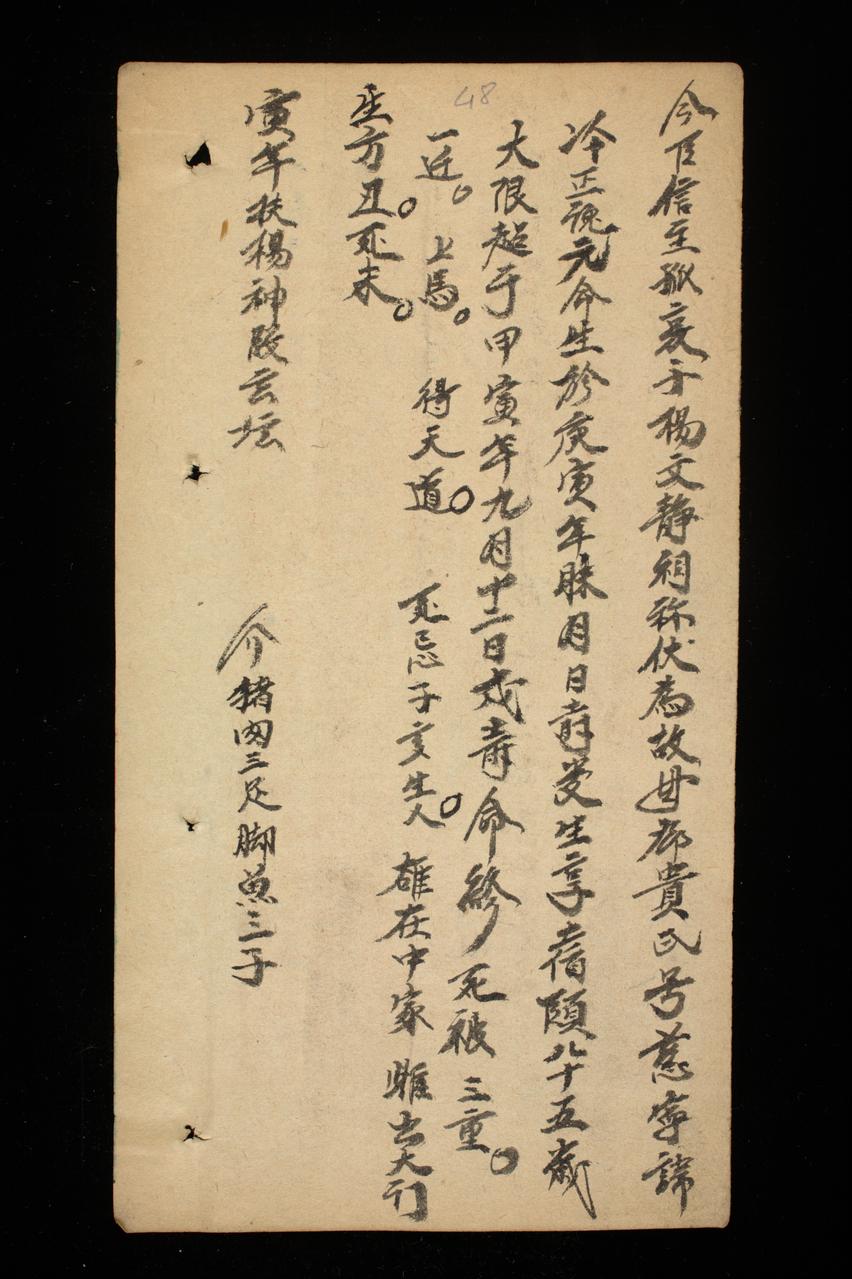 今臣信至孤哀子楊文靜祠祢伏為故母郝貴氏号慈寧諱
冷正魂元命生於庚寅年月日時受生享耆頤八十五歲
大限超于甲寅年九月十二日戌時命終 死被三重。
一近。 上馬。 得天道。 死忌子亥生人。 雄在中家 雌出大门
生方丑。死未。
寅年扶楊神股玄坛
介猪肉三足脚魚三子
48